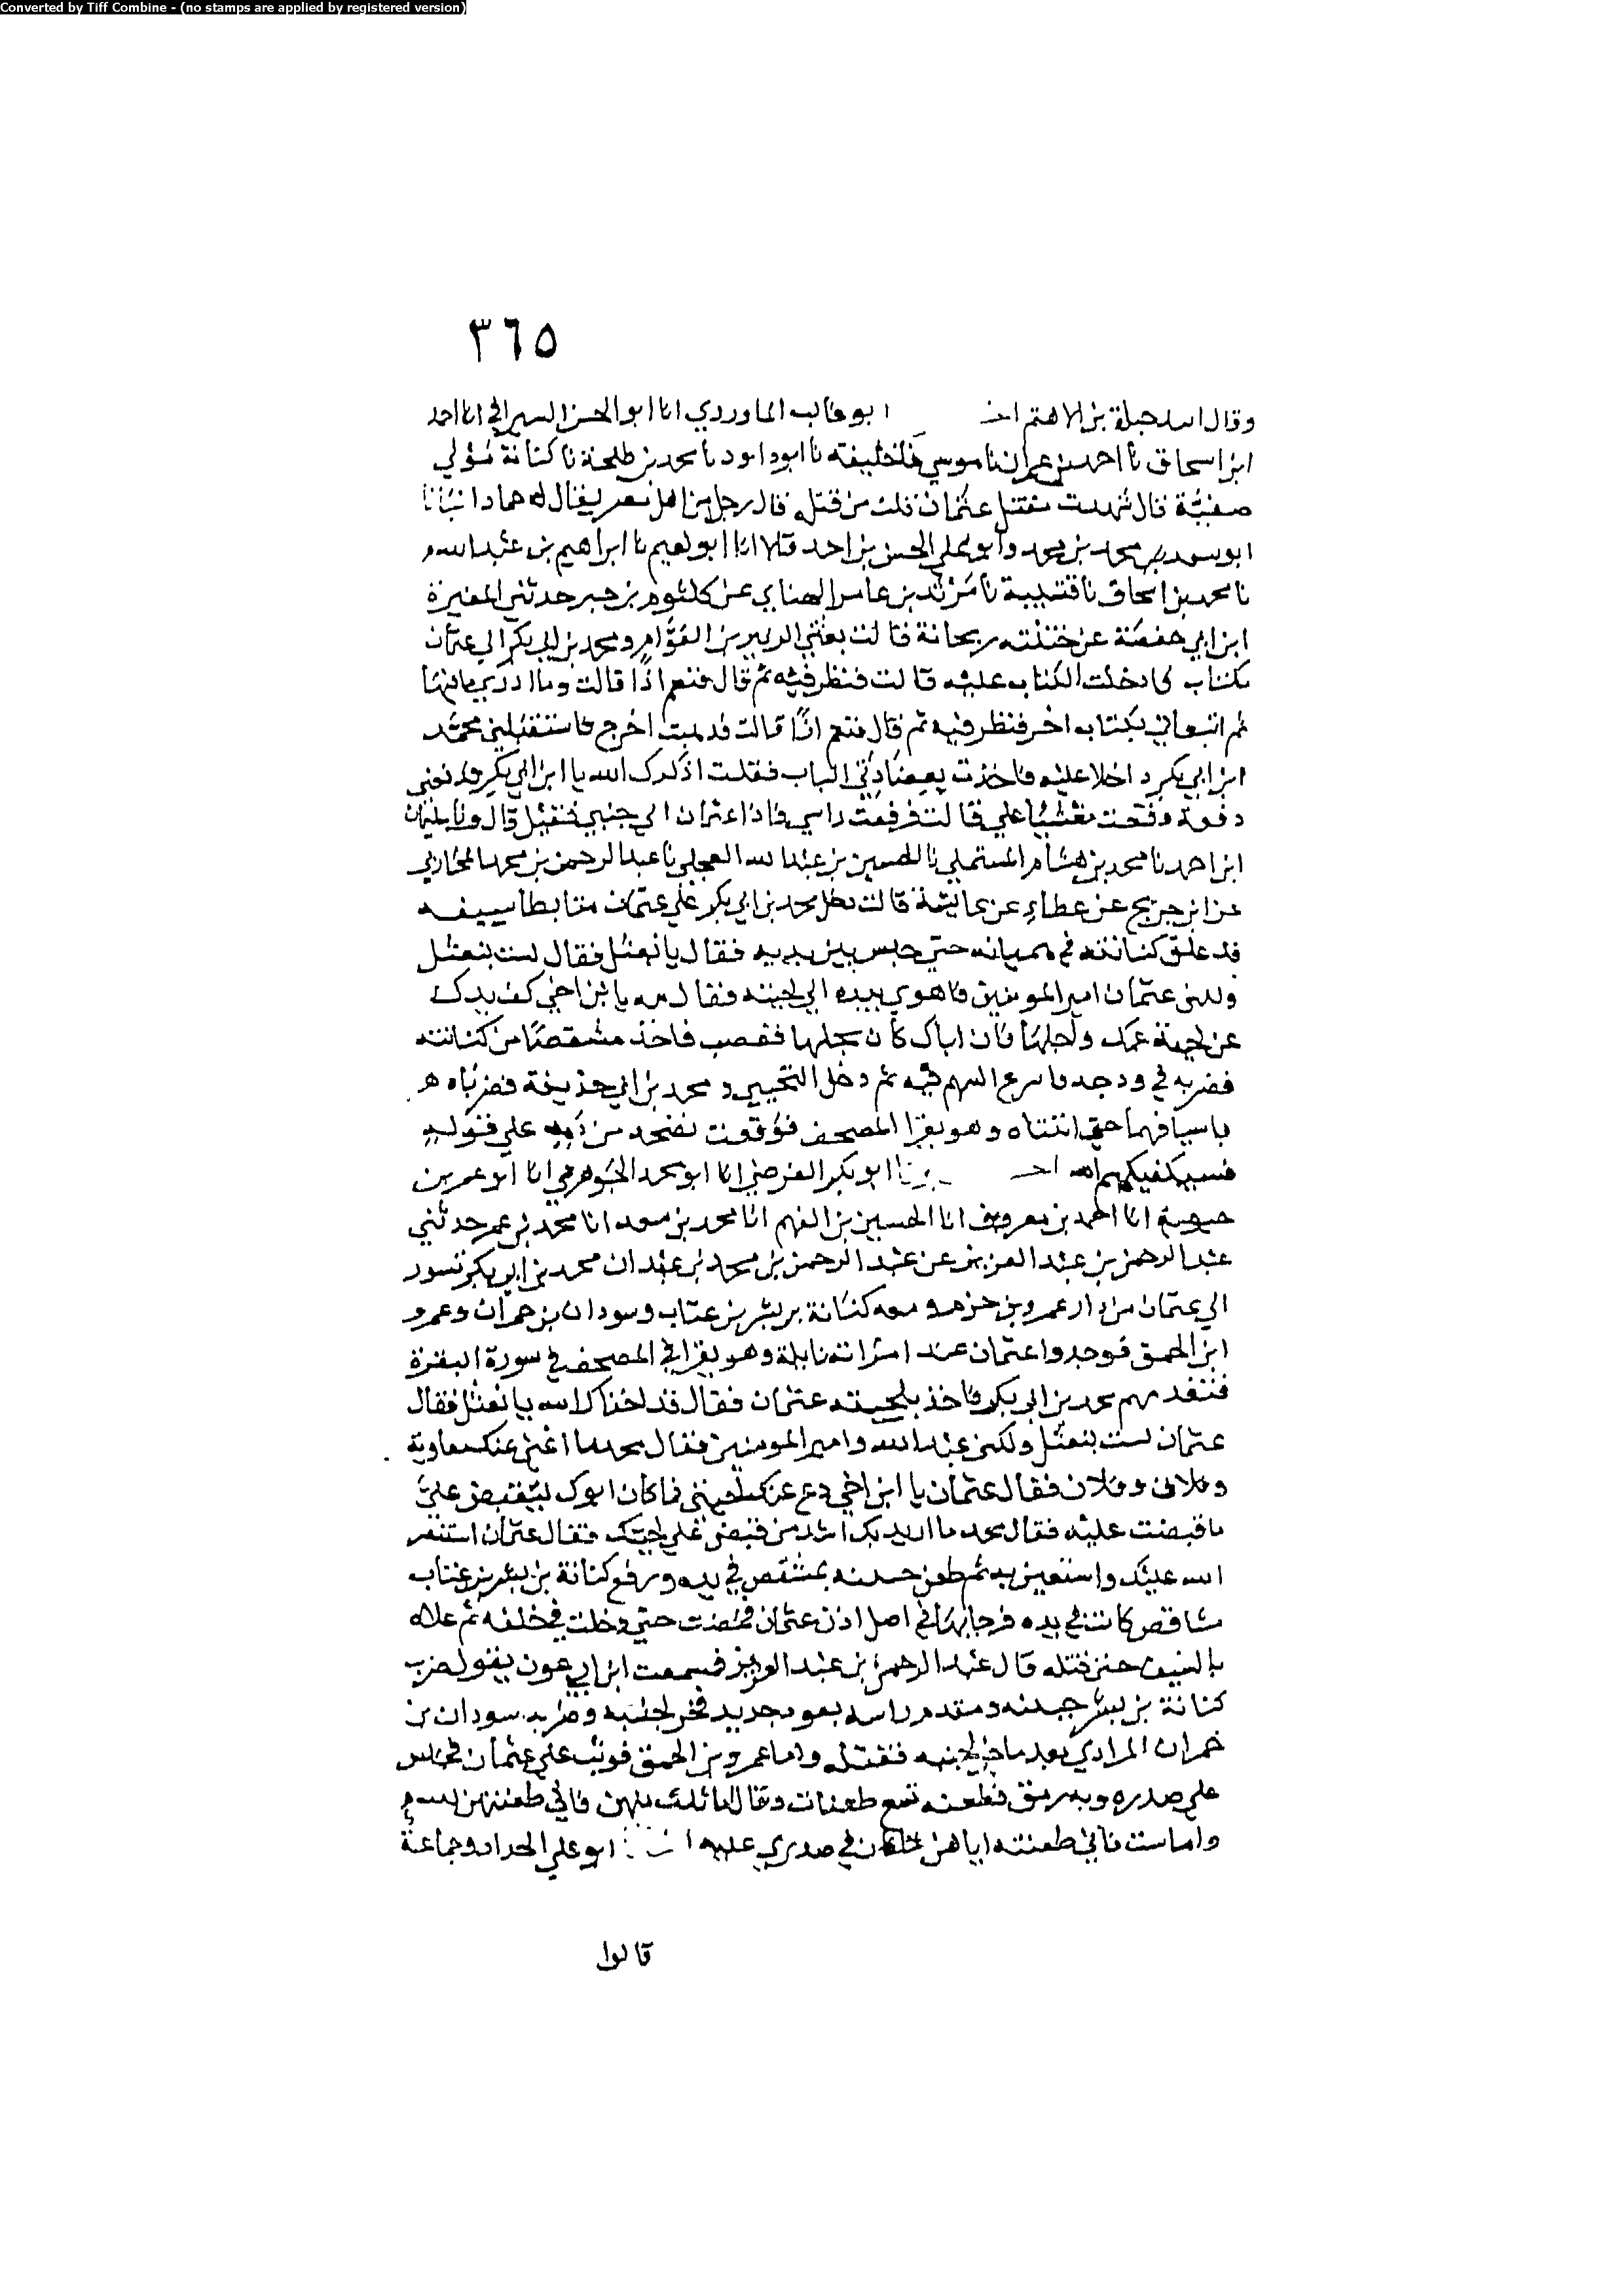 Converted by Tiff Combine - (no stamps are applied by registered version)
٣٦٥
وقال اسد جبلة بن الاهتم اخـ ابو غالب الماوردي انا ابو الحسن السيرافي انا احمد
ابن اسحاق نا احمد بن عمران نا موسي نا خليفه نا ابو داود نا محمد بن طلحة نا كنانة مولي
صفية قال شهدت مقتل عثمان قلت من قتله قال رجل من اهل مصر يقال له حمار انبانا
ابو سعد محمد بن محمد وابو علي الحسن بن احمد قالا انا ابو نعيم نا ابراهيم بن عبد الله
نا محمد بن اسحاق نا قتيبة نا مرثد بن عامر الهنايي عن كلثوم بن جبر حدثني المغيرة
ابن ابي حفصة عن ختنته ريحانة قالت بعثني الزبير بن العوام ومحمد بن ابي بكر الي عثمان
بكتاب فادخلت الكتاب عليه قالت فنظر فيه ثم قال فنعم اذا قالت وما ادري ما فيها
ثم اتبعاني بكتاب اخر فنظر فيه ثم قال فنعم اذا قالت فذهبت اخرج فاستقبلني محمد
ابن ابي بكر داخلا عليه فاخذت بعضادتي الباب فقلت اذكرك الله يا ابن ابي بكر فدفعني
دفعة وقعت مغشيا علي قالت فرفعت راسي فاذا عثمان الي جنبي فقتيل قال ونا سليمان
ابن احمد نا محمد بن هشام المستملي نا الحسين بن عبد الله العجلي نا عبد الرحمن بن محمد المحاربي
عن ابن جريج عن عطاء عن عائشة قالت دخل محمد بن ابي بكر علي عثمان متابطا سيفه
قد علق كنانته في هميانه حتي جلس بين يديه فقال يا نعثل فقال لست بنعثل
ولكني عثمان امير المومنين فاهوي بيده الي لحيته فقال مه يا ابن اخي كف يدك
عن لحية عمك واجلها فان اباك كان يجلها فغضب فاخذ مشقصا من كنانته
فضربه في ودجه فاسرع السهم فيه ثم دخل التجيبي ومحمد بن ابي حذيفة فضرباه
باسيافهما حتي اثبتاه وهو يقرا المصحف فوقعت نضحة من دمه علي قوله
فسيكفيكهم الله اخـ نا ابو بكر الفرضي انا ابو محمد الجوهري انا ابو عمر بن
حيوية انا احمد بن معروف انا الحسين بن الفهم انا محمد بن سعد انا محمد بن عمر حدثني
عبد الرحمن بن عبد العزيز عن عبد الرحمن بن محمد بن عبد ان محمد بن ابي بكر تسور
الي عثمان من دار عمرو بن حزم ومعه كنانة بن بشر بن عتاب وسودان بن حمران وعمرو
ابن الحمق فوجدوا عثمان عند امراته نايلة وهو يقرا في المصحف في سورة البقرة
فتقدمهم محمد بن ابي بكر فاخذ بلحيته عثمان فقال قد اخزاك الله يا نعثل فقال
عثمان لست بنعثل ولكني عبد الله وامير المومنين فقال محمد ما اغني عنك معاوية
وفلان وفلان فقال عثمان يا ابن اخي دع عنك لحيتي فما كان ابوك ليقبض علي
ما قبضت عليه فقال محمد ما اريد بك اشد من قبضي علي لحيتك فقال عثمان استنصر
الله عليك واستعين به ثم طعن جبينه بمشقص في يده ورفع كنانة بن بشر بن عتاب
مشاقص كانت في يده فوجا بها في اصل اذن عثمان فمضت حتي دخلت في حلقه ثم علاه
بالسيف حتي قتله قال عبد الرحمن بن عبد العزيز فسمعت ابن ابي عون يقول ضرب
كنانة بن بشر جبينه ومقدم راسه بعمود حديد فخر لجنبه وضربه سودان بن
حمران المرادي بعد ما خر لجنبه فقتله واما عمرو بن الحمق فوثب علي عثمان فجلس
علي صدره وبه رمق فطعنه تسع طعنات وقال اما ثلاث منهن فاني طعنتهن لله
واما ست فاني طعنته اياهن لما كان في صدري عليه ابو علي الحداد وجماعة
قالوا